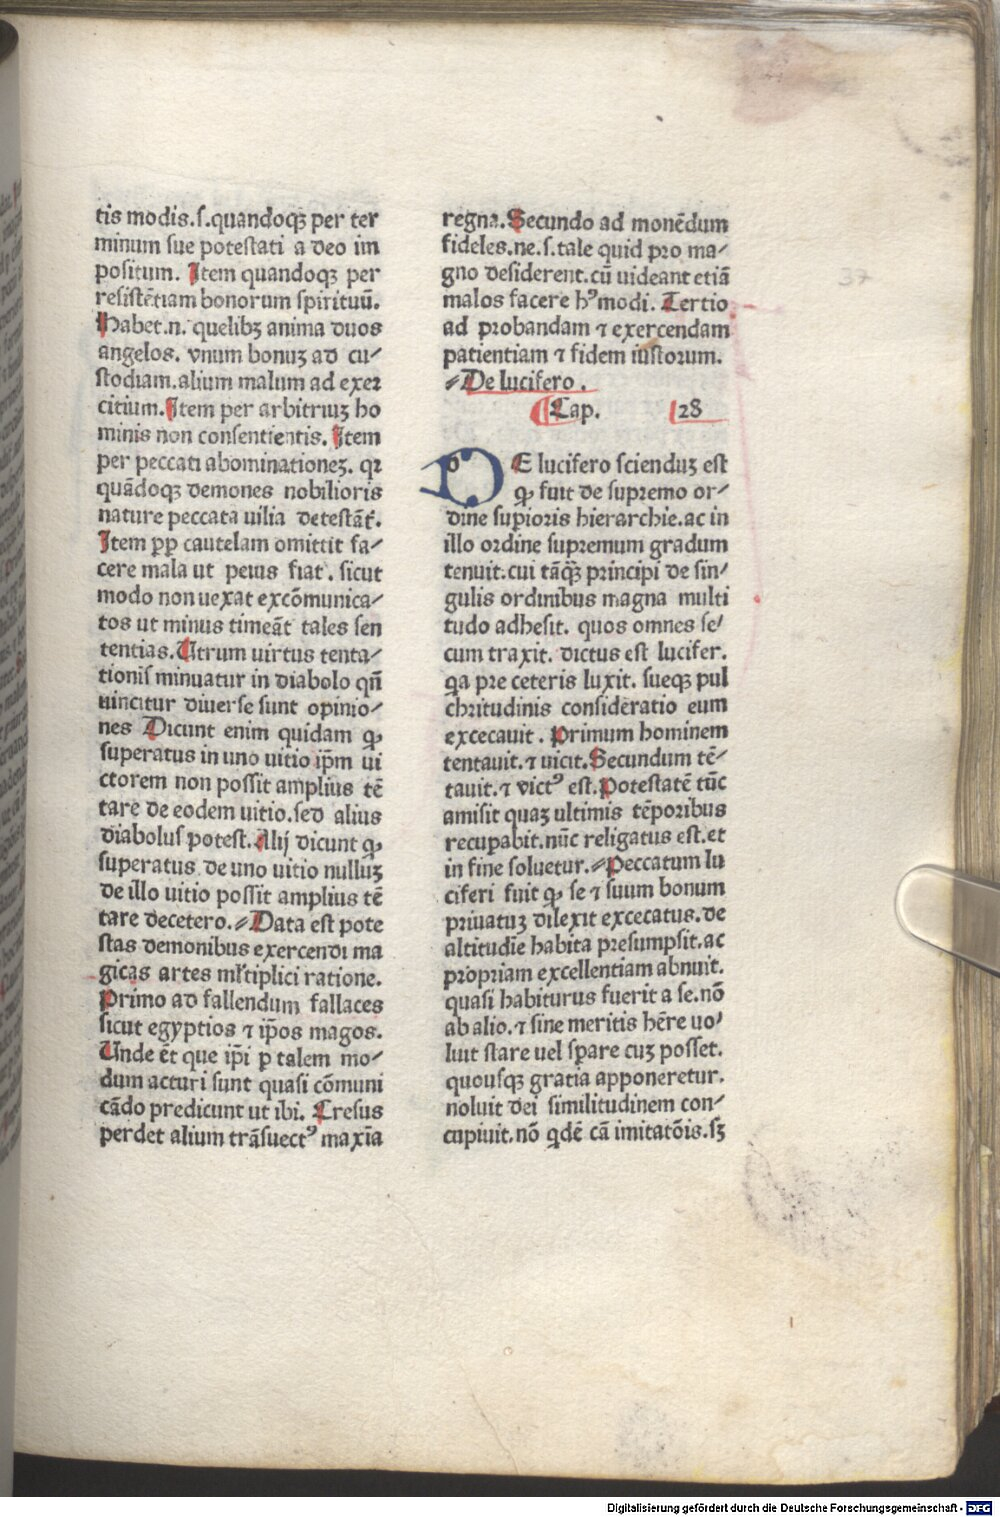 tis modis.ſ.quandoqꝫ per ter
minum ſue poteſtati a deo im
poſitum. Item quandoqꝫ per
reſiſtētiam bonorum ſpirituū.
Habet.n. quelibꝫ anima duos
angelos. vnum bonuꝫ ad cu⸗
ſtodiam.alium malum ad exer
citium.Item per arbitriuꝫ ho
minis non conſentientis. Item
per peccati abominationeꝫ. qꝛ
quādoqꝫ demones nobilioris
nature peccata uilia deteſtāt̄.
Item ꝓp̄ cautelam omittit fa⸗
cere mala ut peius fiat. ſicut
modo non uexat excōmunica⸗
tos ut minus timeāt tales ſen
tentias.Utrum uirtus tenta⸗
tionis minuatur in diabolo qn̄
uincitur diuerſe ſunt opinio⸗
nes Dicunt enim quidam ꝙ
ſuperatus in uno uitio ip̄m ui
ctorem non poſſit amplius tē
tare de eodem uitio.ſed alius
diabolus poteſt.Alij dicunt ꝙ
ſuperatus de uno uitio nulluꝫ
de illo uitio poſſit amplius tē
tare decetero.⸗Data eſt pote
ſtas demonibus exercendi ma
gicas artes ml̄tiplici ratione.
Primo ad fallendum fallaces
ſicut egyptios ⁊ ip̄os magos.
Unde ēt que ip̄i ꝑ talem mo⸗
dum acturi ſunt quaſi cōmuni
cādo predicunt ut ibi. Creſus
perdet alium trāſuectꝰ maxīa
regna.Secundo ad monēdum
fideles.ne.ſ.tale quid pro ma⸗
gno deſiderent.cū uideant etiā
malos facere hꝰmodi. Tertio
ad probandam ⁊ exercendam
patientiam ⁊ fidem iuſtorum.
⸗De lucifero.
Cap. 28
DE lucifero ſcienduꝫ eſt
ꝙ fuit de ſupremo or⸗
dine ſupioris hierarchie.ac in
illo ordine ſupremum gradum
tenuit.cui tāqꝫ principi de ſin⸗
gulis ordinibus magna multi
tudo adheſit. quos omnes ſe⸗
cum traxit. dictus eſt lucifer.
qa pre ceteris luxit. ſueqꝫ pul
chritudinis conſideratio eum
excecauit. Primum hominem
tentauit.⁊ uicit.Secundum tē⸗
tauit.⁊ victꝰ eſt.Poteſtatē tūc
amiſit quaꝫ ultimis tēporibus
recuꝑabit.nūc religatus eſt.et
in fine ſoluetur.⸗Peccatum lu
ciferi fuit ꝙ ſe ⁊ ſuum bonum
priuatuꝫ dilexit excecatus.de
altitudīe habita preſumpſit.ac
propriam excellentiam abnuit.
quaſi habiturus fuerit a ſe.nō
ab alio.⁊ ſine meritis hēre uo⸗
luit ſtare uel ſꝑare cuꝫ poſſet.
quouſqꝫ gratia apponeretur.
noluit dei ſimilitudinem con⸗
cupiuit.nō qdē cā imitatōis.ſꝫ
37
Digitalisierung gefördert durch die Deutsche Forschungsgemeinschaft - DFG